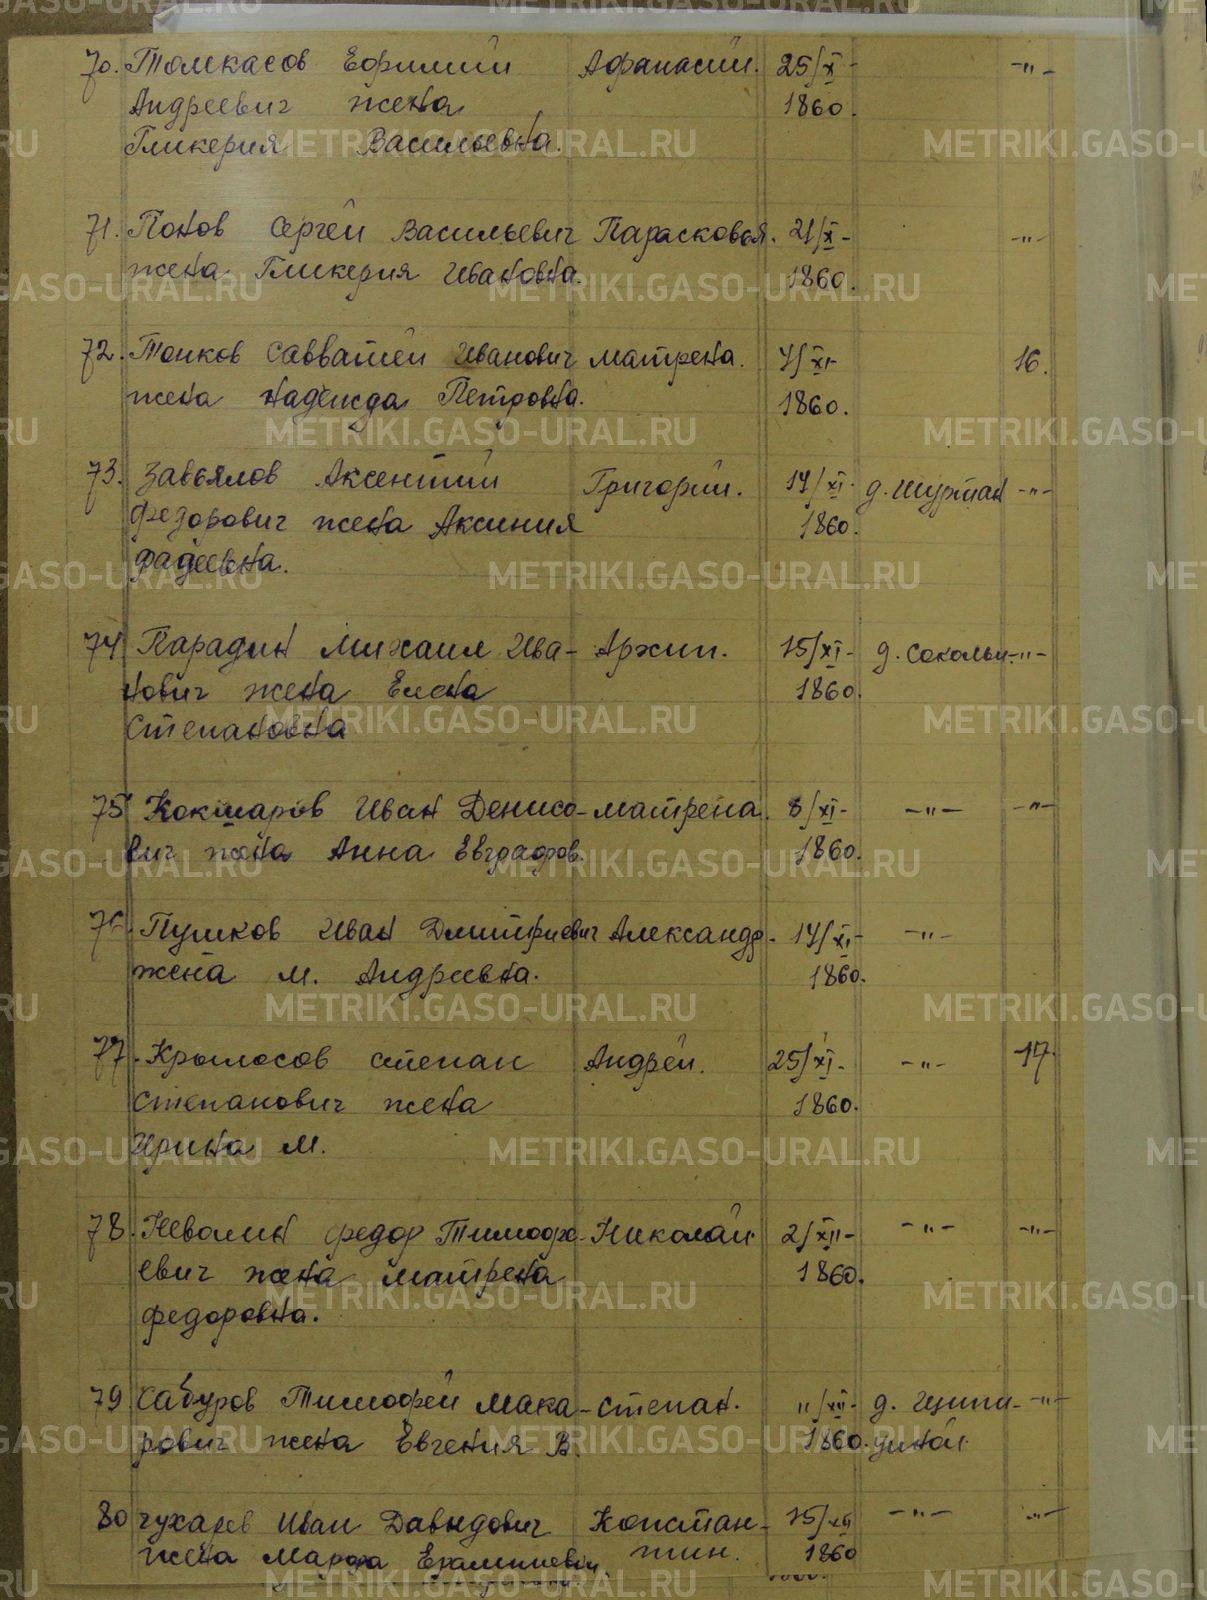 70. Толкасов Ефимий Афанасий. 25/X- -"-
Андреевич жена 1860.
Гликерия Васильевна.
71. Попов Сергей Васильевич Парасковья. 21/X- -"-
жена Гликерия Ивановна. 1860.
72. Савватей Иванович Матрена. 16.
жена Надежда Петровна. 1860.
73. Завьялов Аксентий Григорий. д. Шуртан -"-
Федорович жена Аксиния 1860.
Фадеевна.
74 Парадин Михаил Ива- Архип. 15/XI- д. Сокольи -"-
нович жена Елена 1860.
Степановна
75 Кокшаров Иван Денисо- Матрена. 8/XI- -"- -"-
вич жена Анна Евграфов. 1860.
76. Пушков Иван Дмитриевич Александр. -"-
жена М. Андреевна. 1860.
77. Крылосов Степан Андрей. 25/XI- -"- 17.
Степанович жена 1860.
Ирина М.
78. Неволин Федор Тимофе- Николай. 2/XII- -"- -"-
евич жена Матрена 1860.
Федоровна.
79 Сабуров Тимофей Мака- Степан. 11/XII- д. -"-
рович жена Евгения В. 1860.
80 Чухарев Иван Давыдович Констан- 15/XII -"- -"-
жена Марфа тин. 1860
METRIKI.GASO-URAL.RU